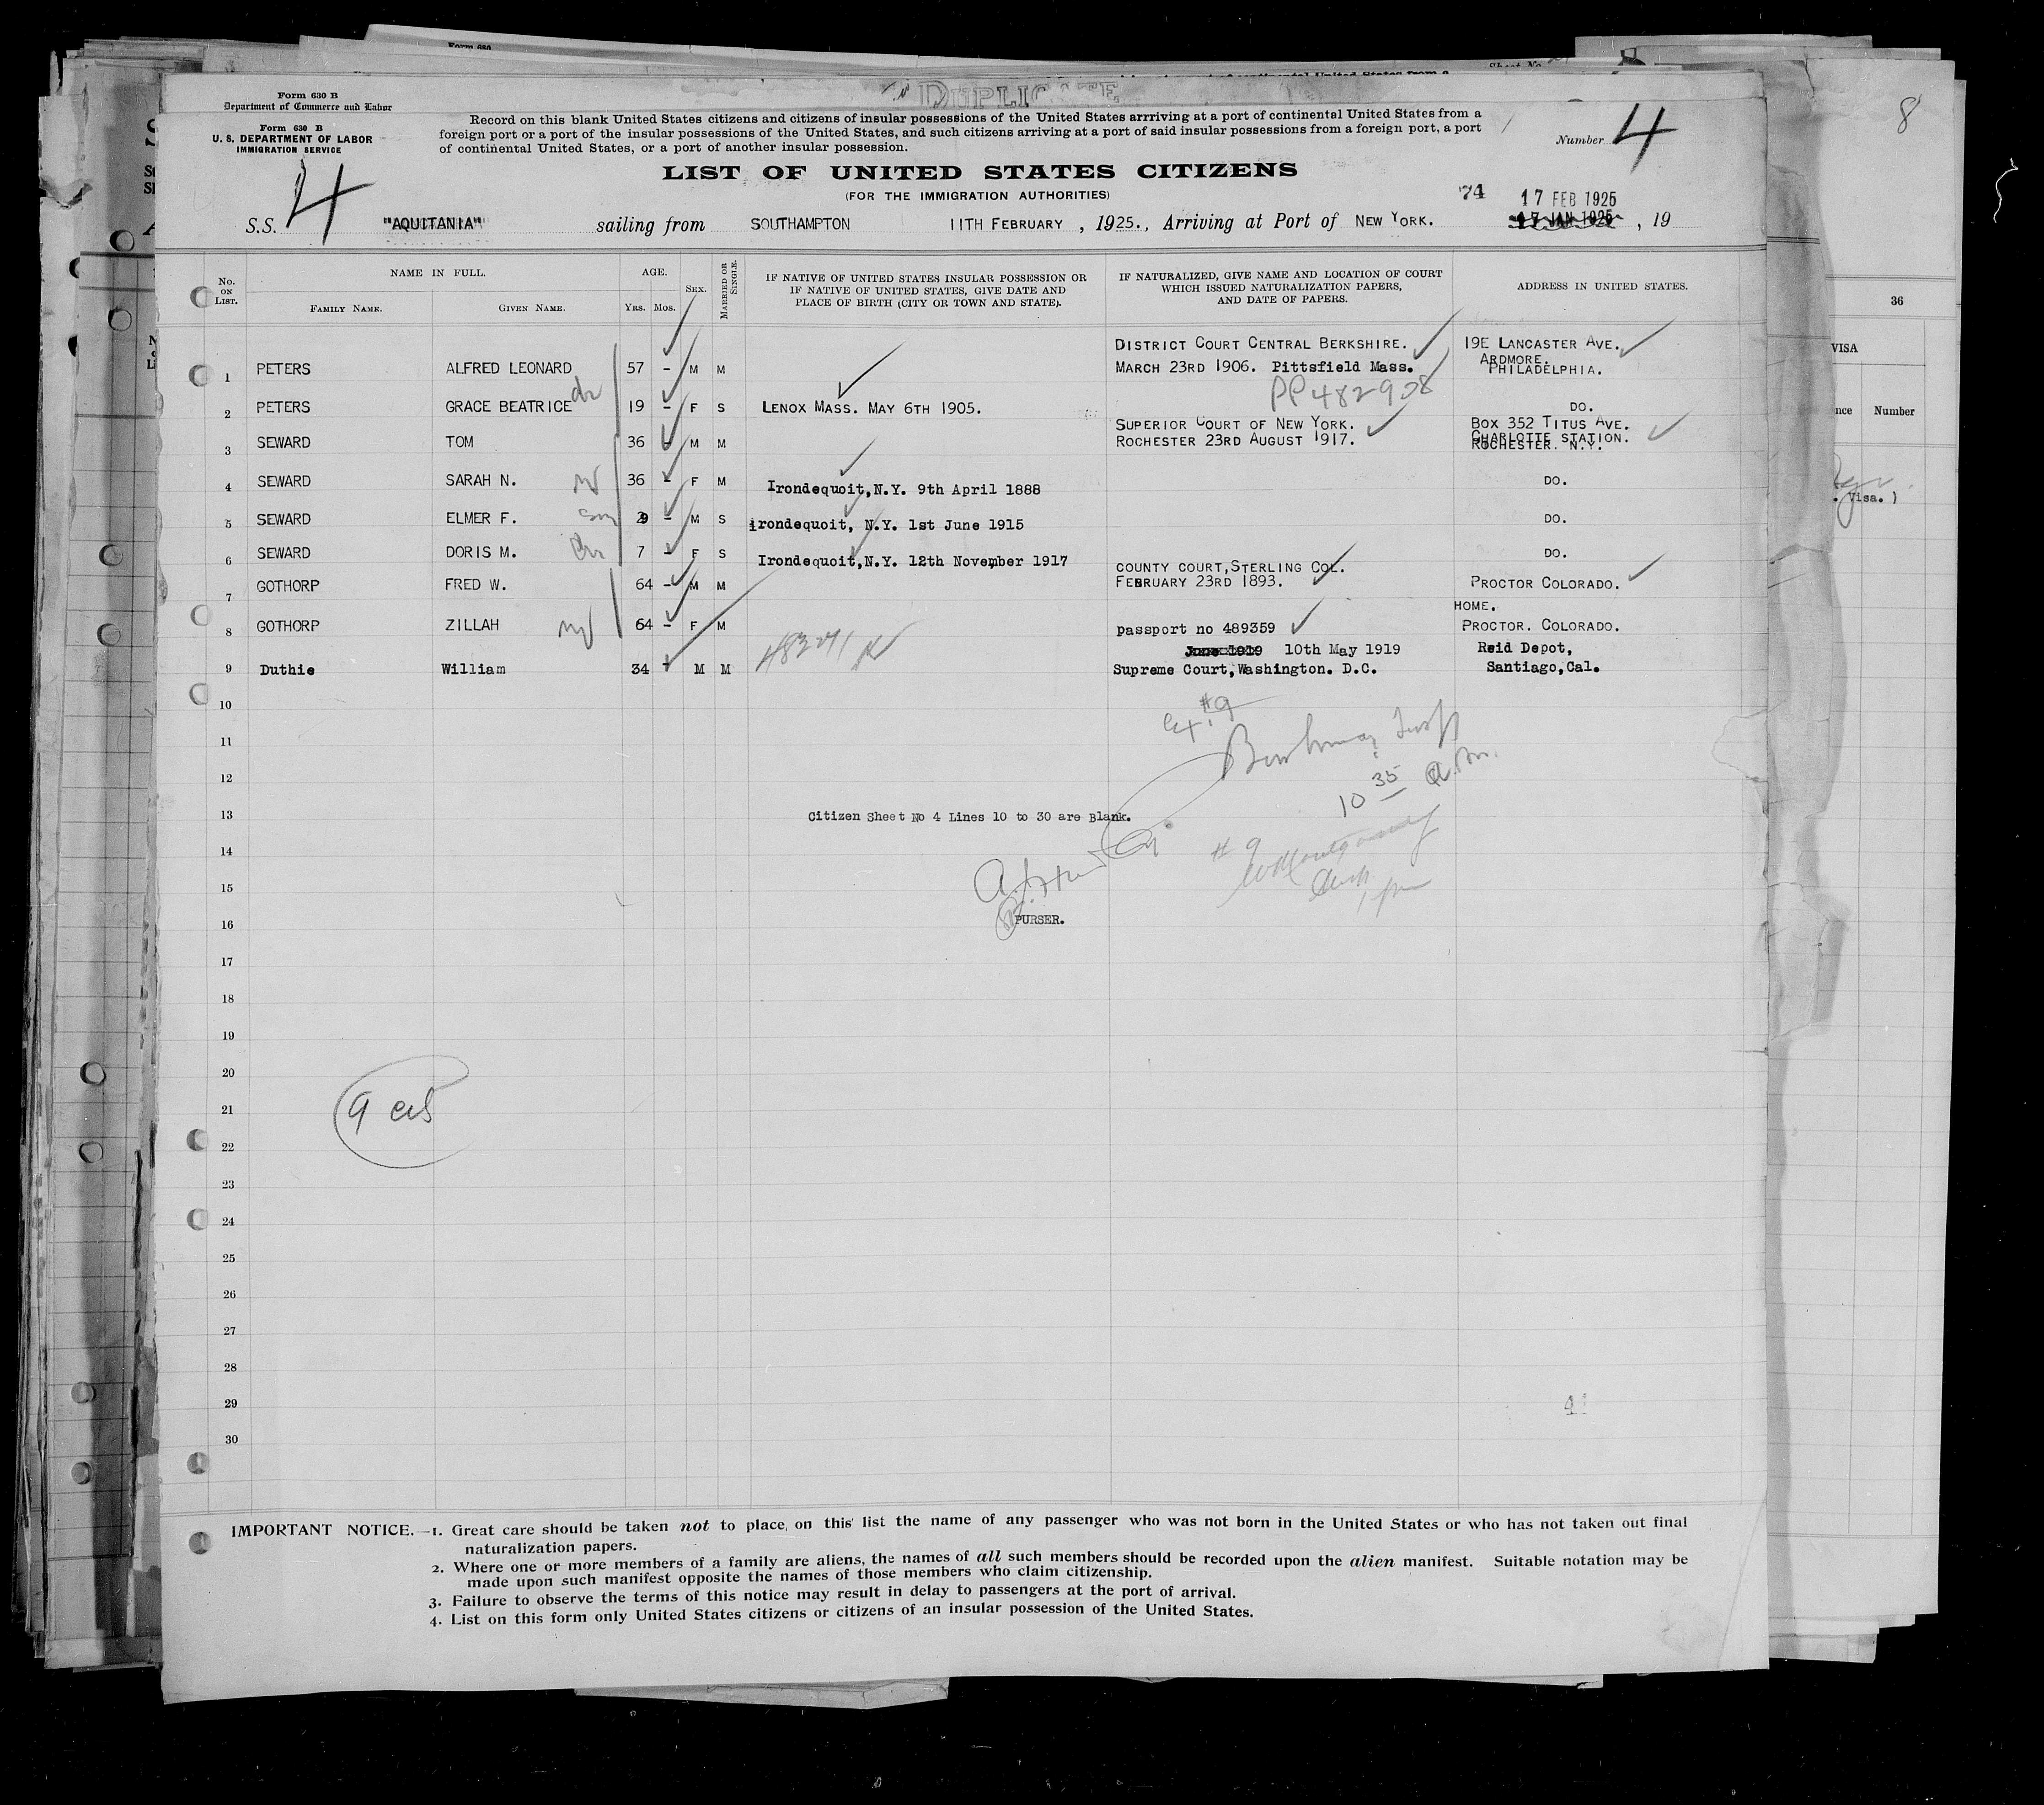 DUPLICATE
Form 630 B
Department of Commerce and Labor
Form 630 B
U. S. DEPARTMENT OF LABOR
IMMIGRATION SERVICE
Record on this blank United States citizens and citizens of insular possessions of the United States arrriving at a port of continental United States from a
foreign port or a port of the insular possessions of the United States, and such citizens arriving at a port of said insular possessions from a foreign port, a port
of continental United States, or a port of another insular possession.
Number 4
8
LIST OF UNITED STATES CITIZENS
(FOR THE IMMIGRATION AUTHORITIES)
4
74
17 FEB 1925
S.S. "AQUITANIA" sailing from SOUTHAMPTON 11TH FEBRUARY , 1925., Arriving at Port of NEW YORK. 17 JAN 1925 , 19
No. ON LIST.
NAME IN FULL.
FAMILY NAME. GIVEN NAME.
AGE.
YRS. MOS.
SEX.
MARRIED OR SINGLE.
IF NATIVE OF UNITED STATES INSULAR POSSESSION OR
IF NATIVE OF UNITED STATES, GIVE DATE AND
PLACE OF BIRTH (CITY OR TOWN AND STATE).
IF NATURALIZED, GIVE NAME AND LOCATION OF COURT
WHICH ISSUED NATURALIZATION PAPERS,
AND DATE OF PAPERS.
ADDRESS IN UNITED STATES.
36
VISA
Number
Visa. )
DISTRICT COURT CENTRAL BERKSHIRE. 19E LANCASTER AVE.
ARDMORE.
1 PETERS ALFRED LEONARD 57 - M M MARCH 23RD 1906. Pittsfield Mass. PHILADELPHIA.
PP 482908
2 PETERS GRACE BEATRICE 19 - F S LENOX MASS. MAY 6TH 1905. DO.
SUPERIOR COURT OF NEW YORK. BOX 352 TITUS AVE.
CHARLOTTE STATION.
3 SEWARD TOM 36 - M M ROCHESTER 23RD AUGUST 1917. ROCHESTER. N.Y.
4 SEWARD SARAH N. 36 - F M Irondequoit,N.Y. 9th April 1888 DO.
5 SEWARD ELMER F. 9 - M S irondequoit, N.Y. 1st June 1915 DO.
6 SEWARD DORIS M. 7 - F S Irondequoit,N.Y. 12th November 1917 DO.
COUNTY COURT,STERLING COL.
7 GOTHORP FRED W. 64 - M M FEBRUARY 23RD 1893. PROCTOR COLORADO.
HOME.
8 GOTHORP ZILLAH 64 - F M passport no 489359 PROCTOR. COLORADO.
June 1919 10th May 1919 Reid Depot,
9 Duthie William 34 - M M Supreme Court,Washington. D.C. Santiago,Cal.
10
#9
11
12
10 35 a.m.
13 Citizen Sheet No 4 Lines 10 to 30 are Blank.
14
#9
15
16 PURSER.
17
18
19
20
21
9
22
23
24
25
26
27
28
29
30
IMPORTANT NOTICE.—1. Great care should be taken not to place on this list the name of any passenger who was not born in the United States or who has not taken out final
naturalization papers.
2. Where one or more members of a family are aliens, the names of all such members should be recorded upon the alien manifest. Suitable notation may be
made upon such manifest opposite the names of those members who claim citizenship.
3. Failure to observe the terms of this notice may result in delay to passengers at the port of arrival.
4. List on this form only United States citizens or citizens of an insular possession of the United States.